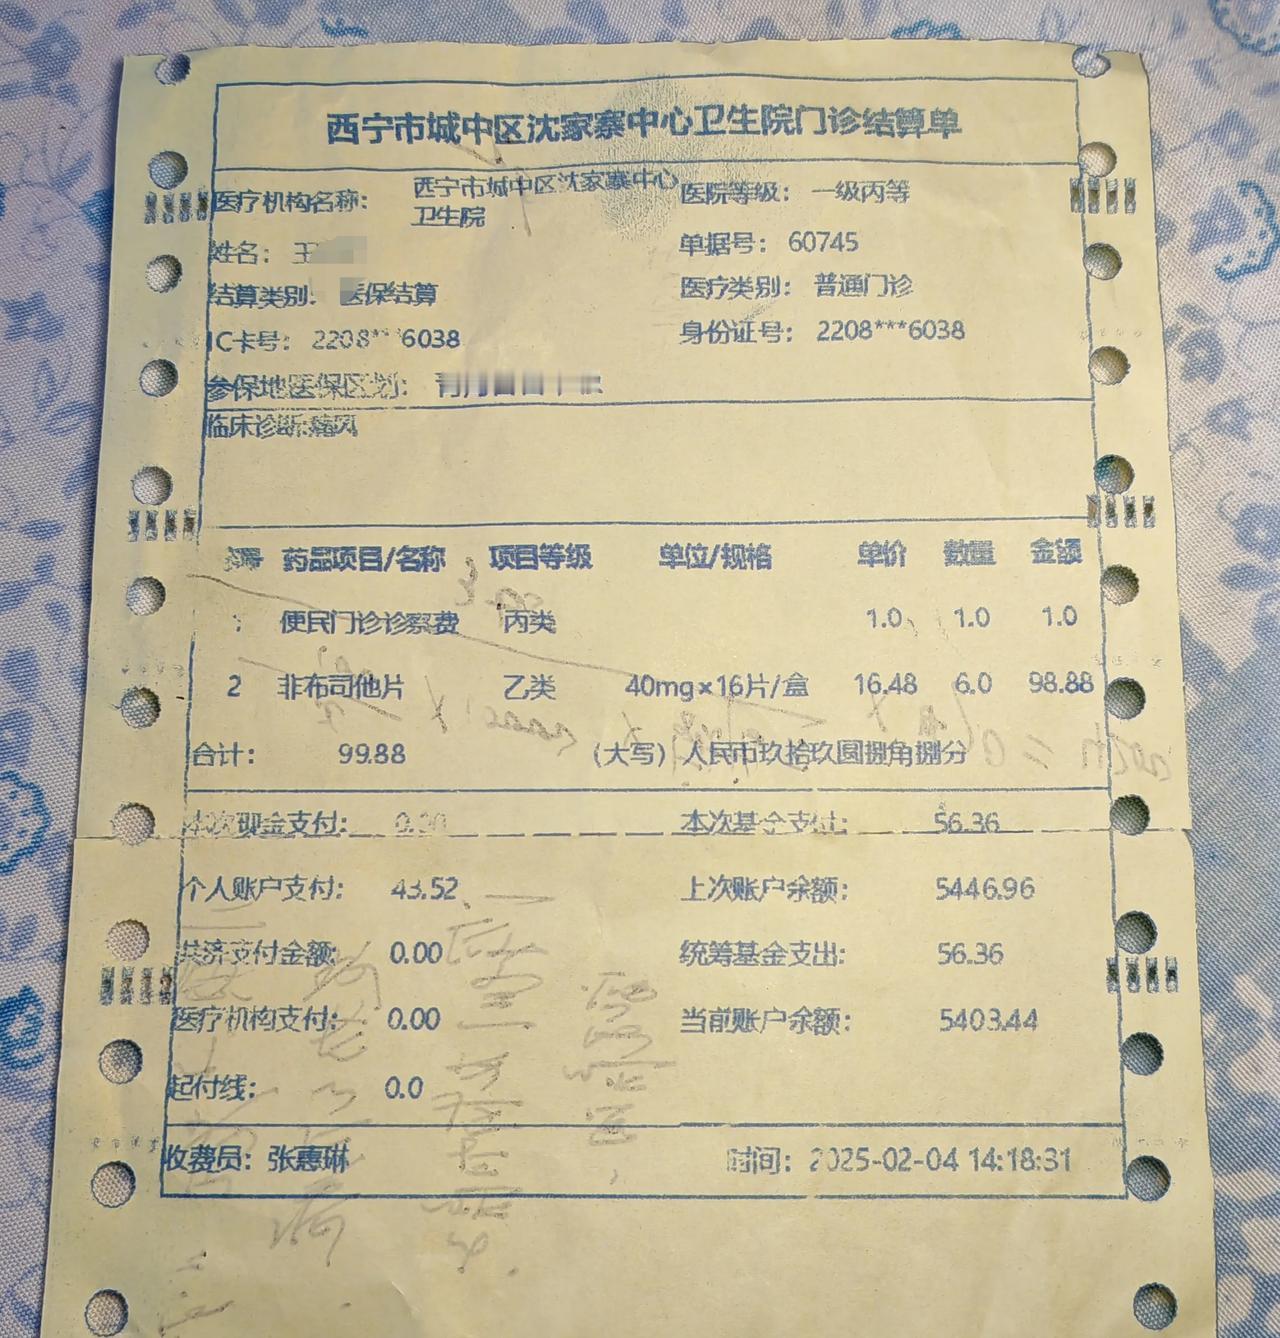 西宁市城中区沈家寨中心卫生院门诊结算单
医疗机构名称: 西宁市城中区沈家寨中心卫生院 医院等级: 一级丙等
姓名: 王 单据号: 60745
结算类别: 医保结算 医疗类别: 普通门诊
IC卡号: 2208***6038 身份证号: 2208***6038
参保地医保区划:
临床诊断:痛风
序号 药品项目/名称 项目等级 单位/规格 单价 数量 金额
1 便民门诊诊察费 丙类 1.0 1.0 1.0
2 非布司他片 乙类 40mg×16片/盒 16.48 6.0 98.88
合计: 99.88 (大写) 人民币玖拾玖圆捌角捌分
本次现金支付: 0.00 本次基金支付: 56.36
个人账户支付: 43.52 上次账户余额: 5446.96
共济支付金额: 0.00 统筹基金支出: 56.36
医疗机构支付: 0.00 当前账户余额: 5403.44
起付线: 0.0
收费员: 张惠琳 时间: 2025-02-04 14:18:31